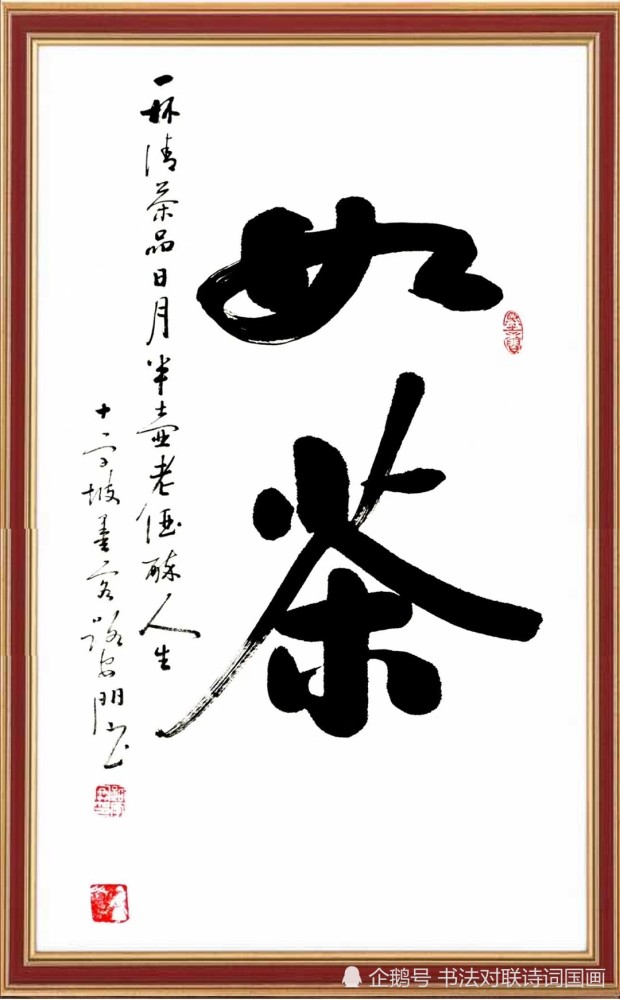 如茶
一杯清茶品日月半壶老酒醉人生
十字坡墨客路安明书
企鹅号 书法对联诗词国画